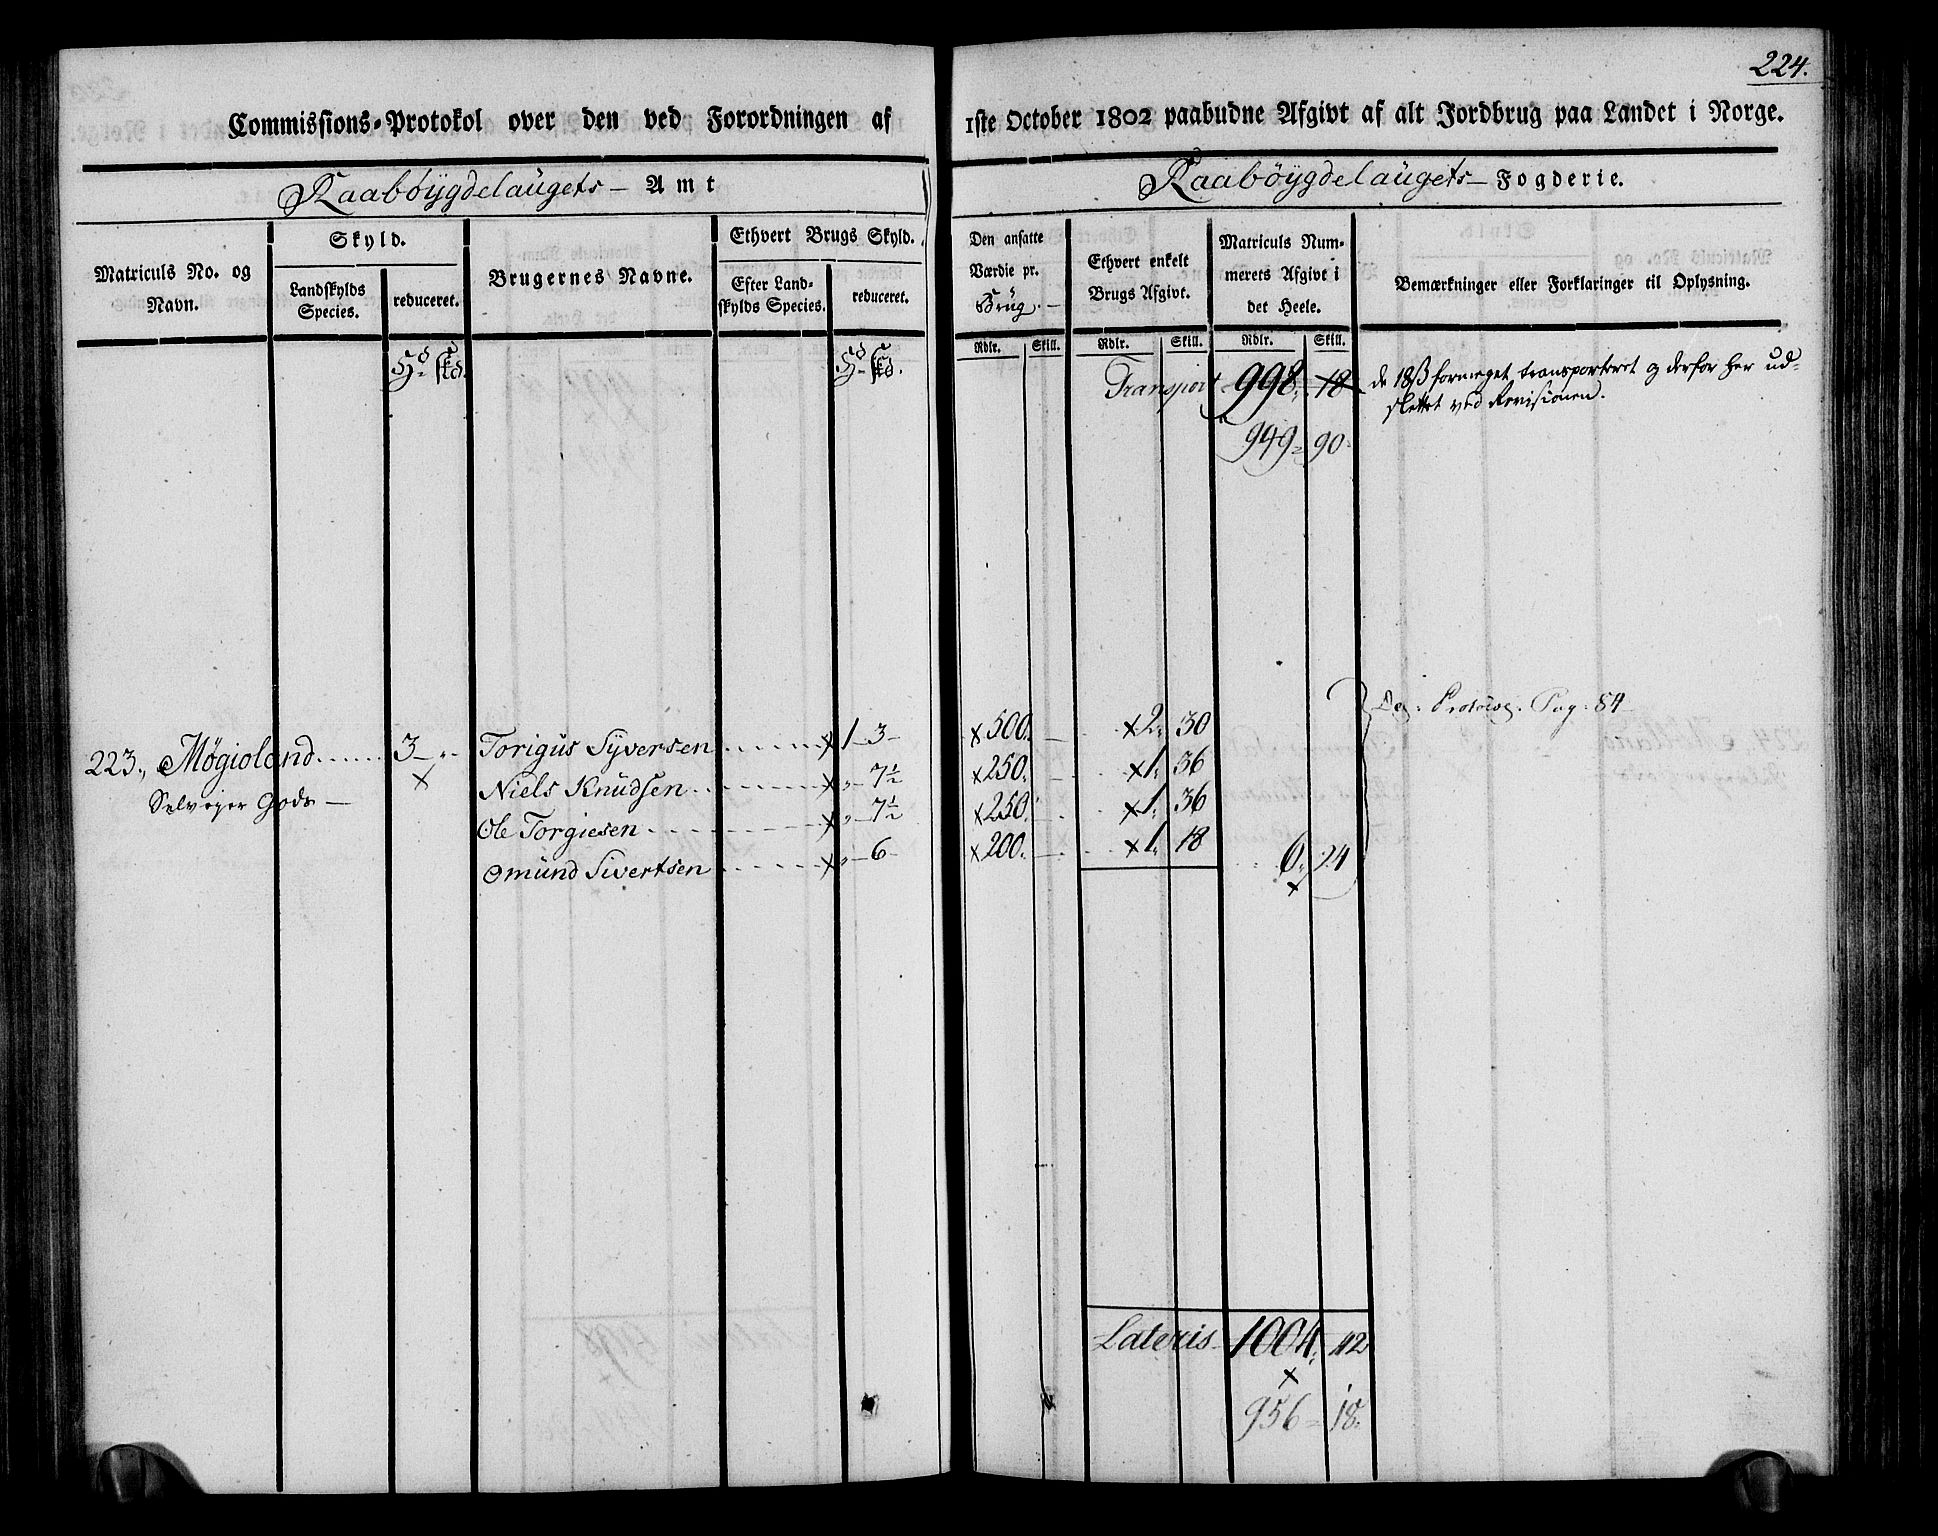 224.
Commissions-Protokol over den ved Forordningen af 1ste October 1802 paabudne Afgivt af alt Jordbrug paa Landet i Norge.
Raabøygdelaugets Amt
Raabøygdelaugets Fogderie.
Matriculs No. og Navn.
Skyld.
Landskylds Species.
reduceret.
Brugernes Navne.
Ethvert Brugs Skyld.
Efter Landskylds Species.
reduceret.
Den ansatte Værdie pr. Brug.
Ethvert enkelt Brugs Afgivt.
Matriculs Nummerets Afgivt i det Heele.
Bemærkninger eller Forklaringer til Oplysning.
Rdlr. Skill. Rdlr. Skill. Rdlr. Skill.
Hd skd. Hd skd.
Transport 998. 18 de 18 ß formeget transporteret og derfor her ud-
slettet ved Revisionen.
949 90
Dep: Protocol. Pag: 84
223., Møgioland 3 Torigus Syversen x 1 3 x 500. x 2. 30
Selvejer Gods x Niels Knudsen x „ 7½ x 250. x 1. 36
Ole Torgiesen x „ 7½ x 250. x 1. 36
Omund Sivertsen x „ 6 x 200. x 1. 18 6. 24
x
Lateris 1004. 42
x
956 18.